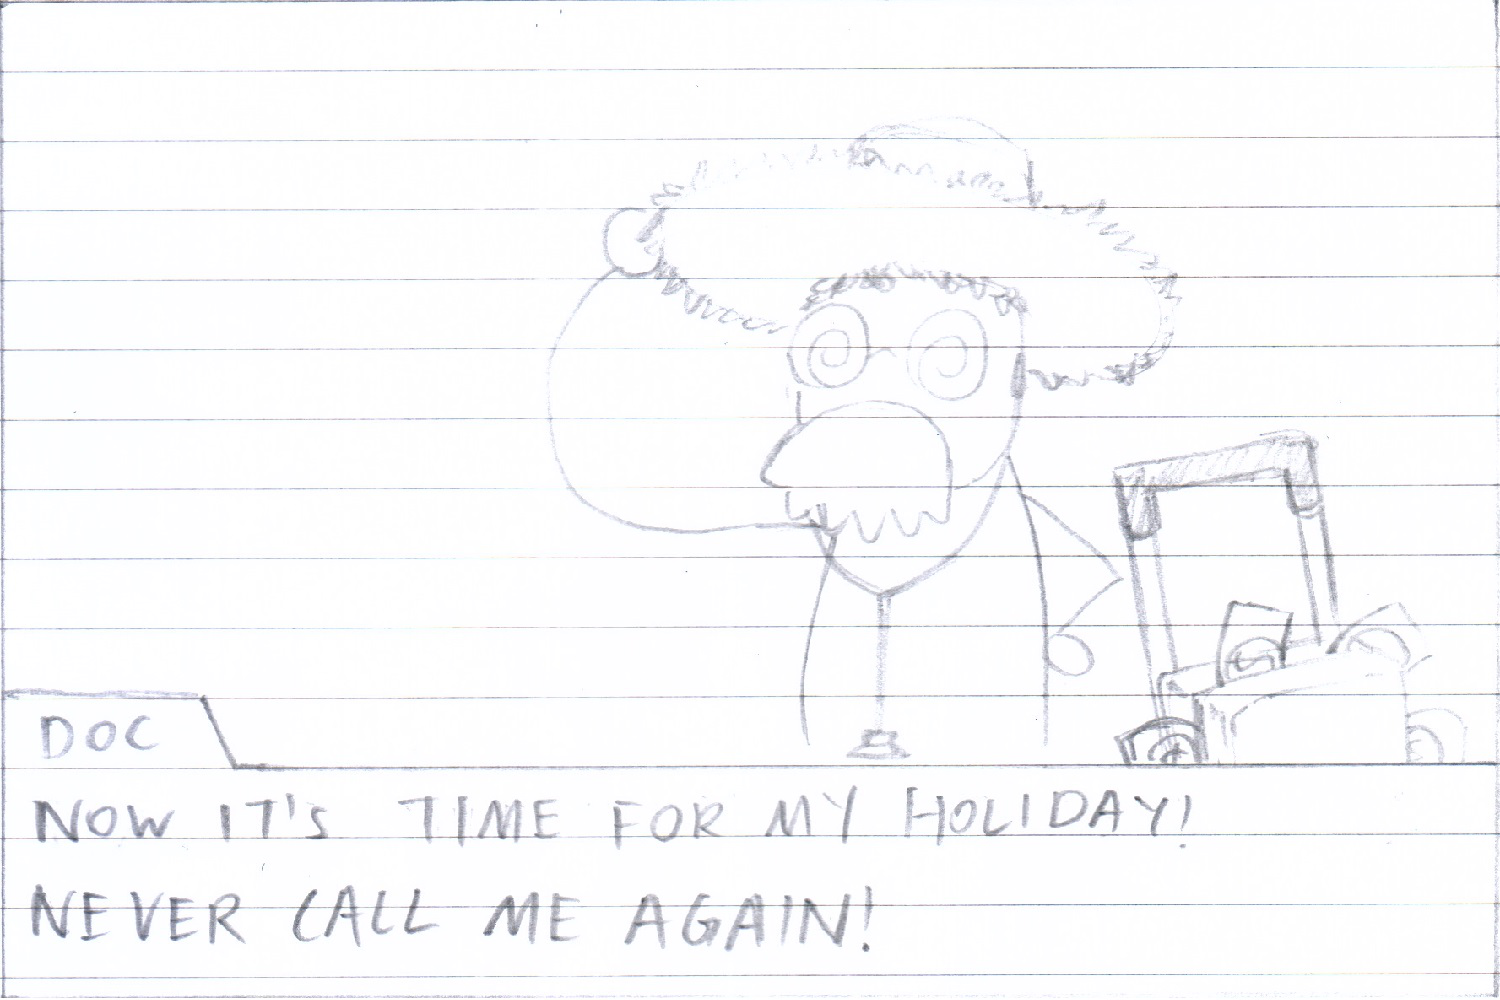 DOC
NOW IT'S TIME FOR MY HOLIDAY!
NEVER CALL ME AGAIN!